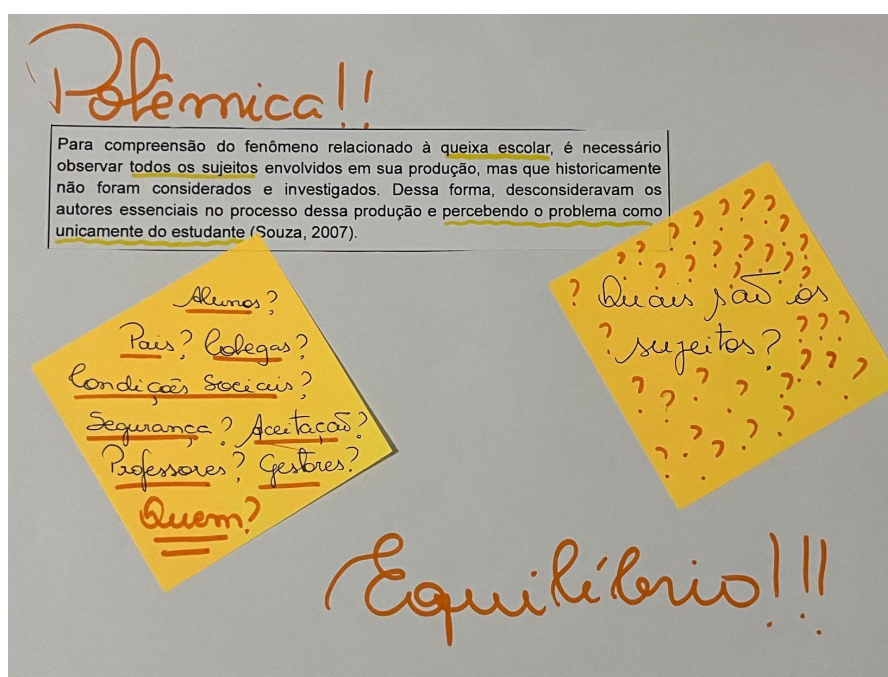 Polêmica!!
Para compreensão do fenômeno relacionado à queixa escolar, é necessário
observar todos os sujeitos envolvidos em sua produção, mas que historicamente
não foram considerados e investigados. Dessa forma, desconsideravam os
autores essenciais no processo dessa produção e percebendo o problema como
unicamente do estudante (Souza, 2007).
Alunos?
Pais? Colegas?
Condições Sociais?
Segurança? Aceitação?
Professores? Gestores?
Quem?
? ? ? ? ?
? ? ? ? ? ?
? ? ? ? ? ?
? Quais são os
? sujeitos? ? ? ?
? ? ? ? ? ? ?
? ? ? ? ?
Equilíbrio!!!